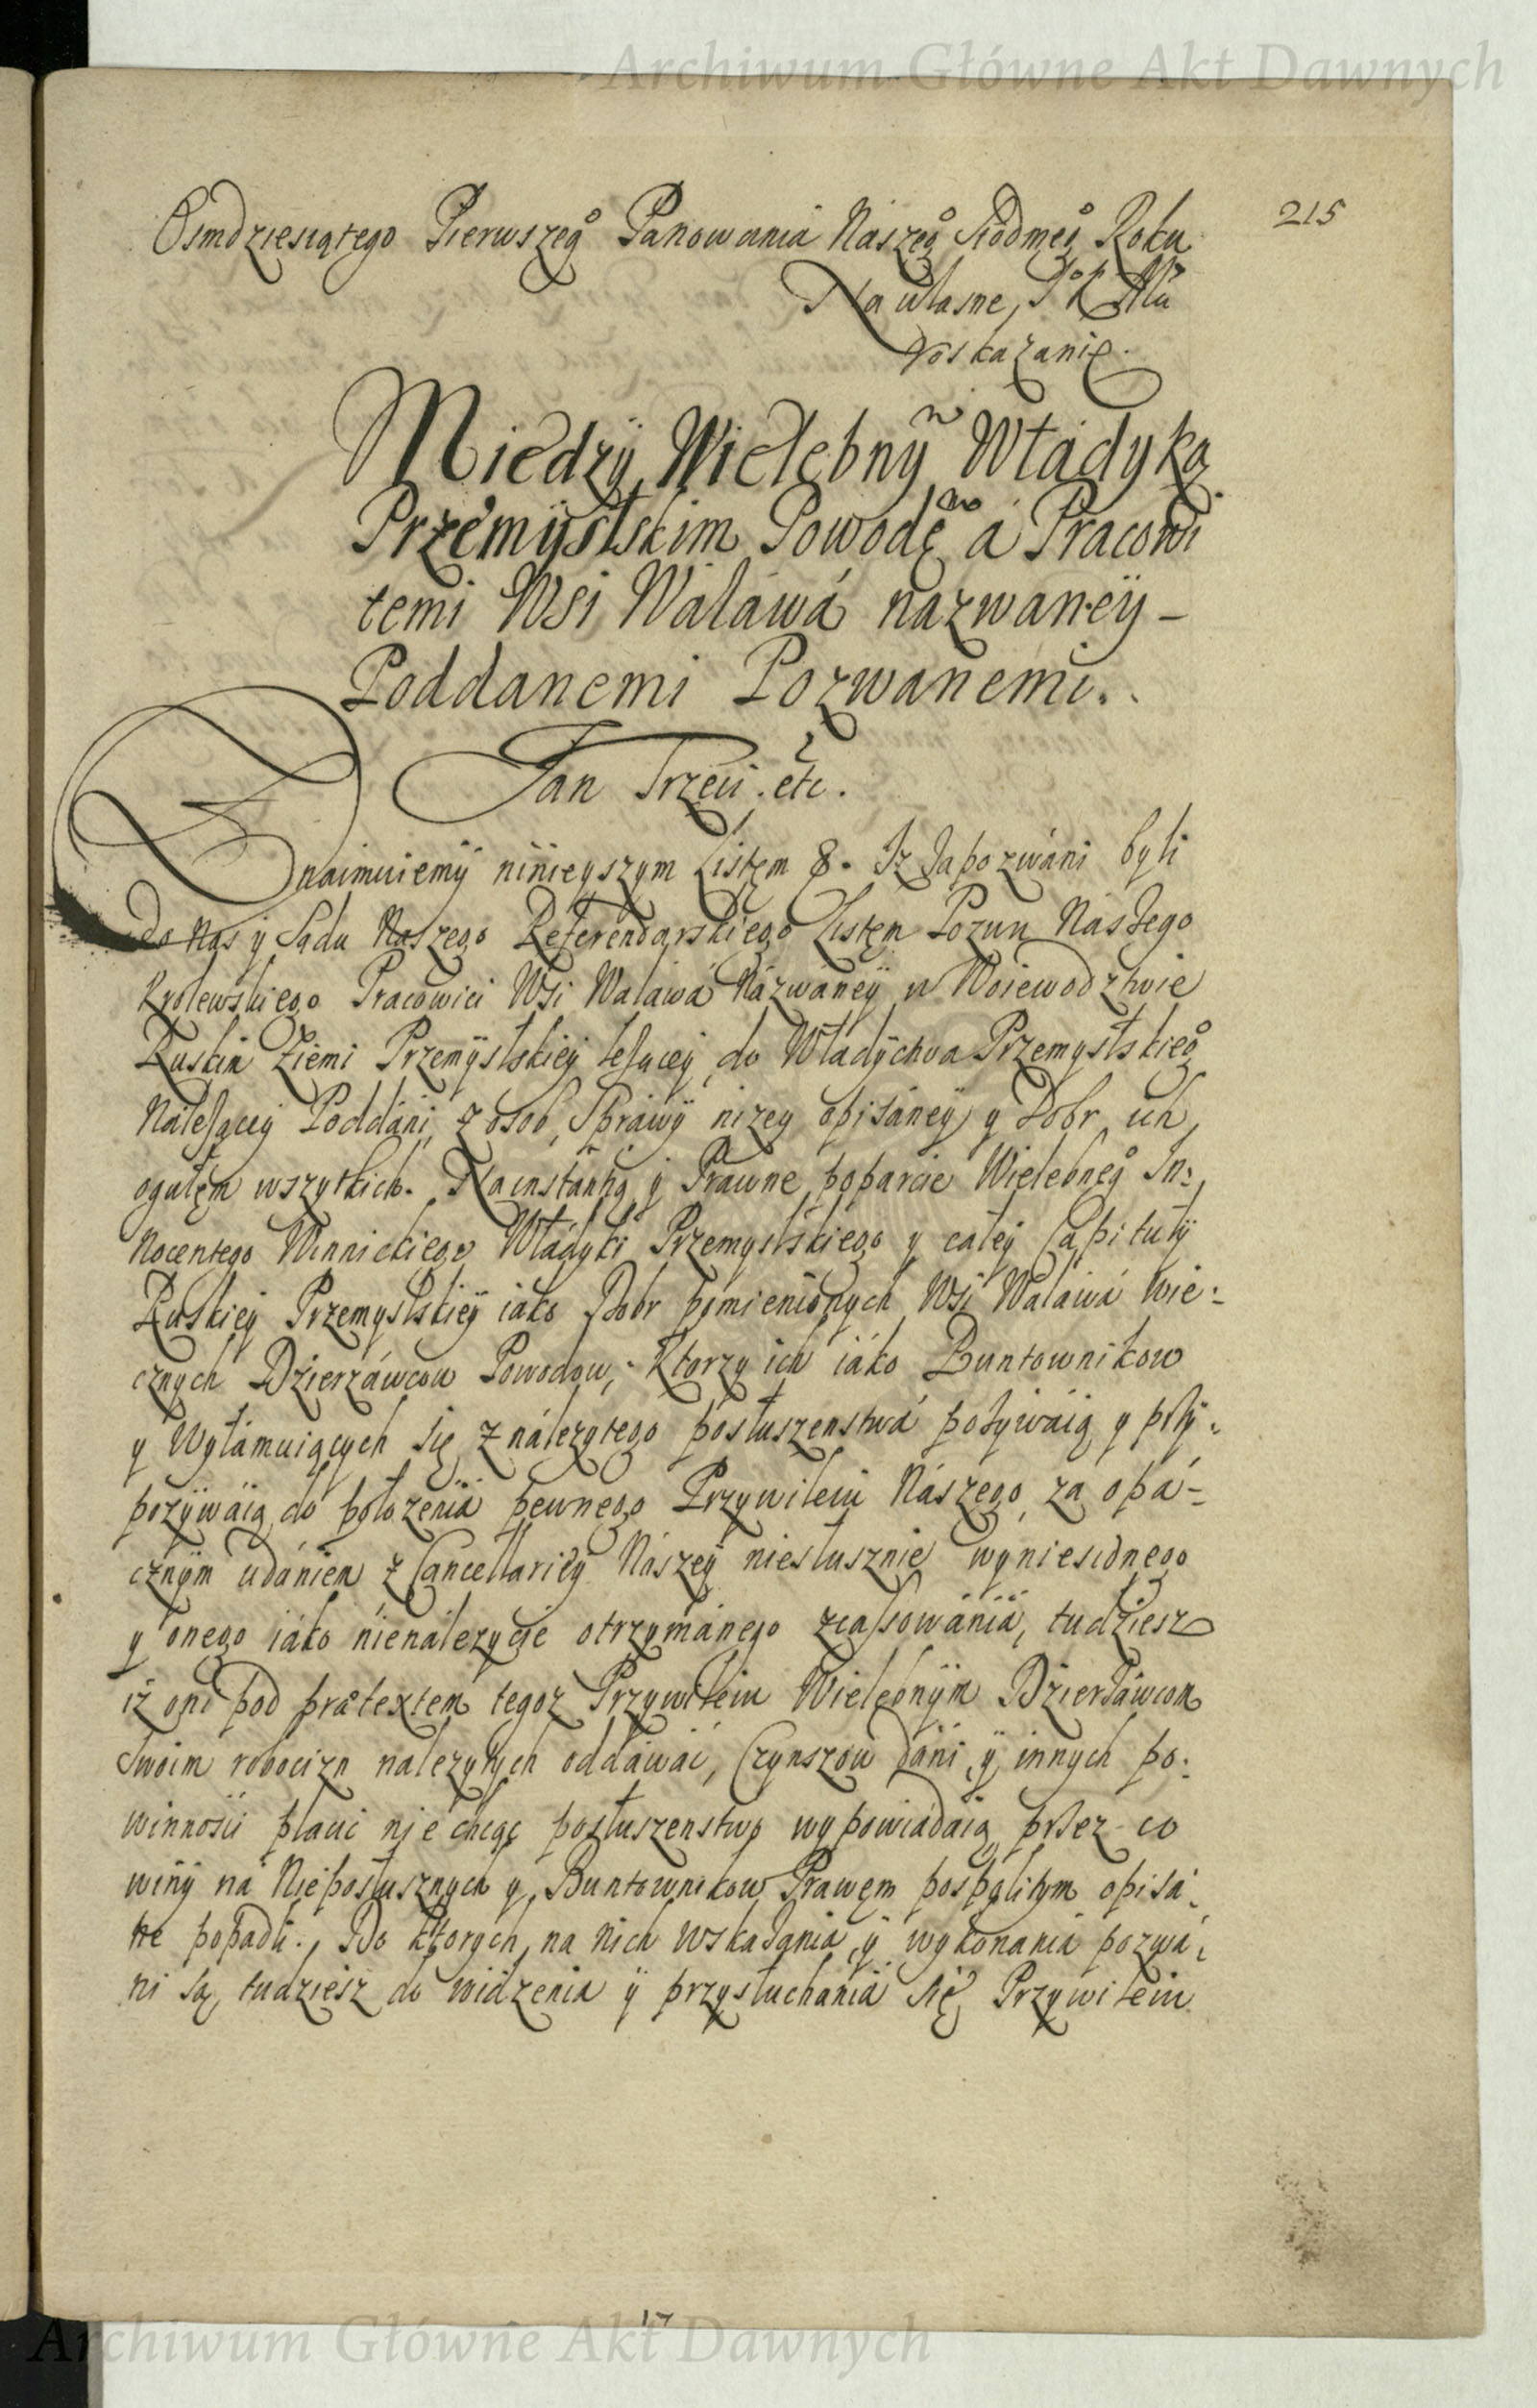 Archiwum Główne Akt Dawnych
215
Osmdziesiątego Pierwszego Panowania Naszego Siodmego Roku
Na własne J K Mci
roskazanie.
Miedzÿ Wielebnÿm Władyką
Przemÿslskim Powodęm á Pracowi
temi Wsi Waláwá nazwaneÿ –
Poddanemi Pozwanemi.
Jan Trzeci etc.
Znaimuiemÿ ninieyszym Listęm 8. Iz Zapozwáni byli
do Nas y Sądu Naszego Referendarskiego Listęm Pozwu Naszego
Krolewskiego Pracowici Wsi Waláwá Názwáneÿ w Woiewodztwie
Ruskim Ziemi Przemÿslskiey leżącey do Władÿctwa Przemyslskiego
Należącey Poddáni z osob, Spráwÿ nizey opisáney y Dobr ich
ogułęm wszytkich. Na instántią ÿ Prawne poparcie Wielebnego In:
nocentego Winnickiego Władyki Przemyslskiego y całey Capitułÿ
Ruskiey Przemyslskiey iáko Dobr pomienionych Wsi Waláwá Wie:
cznych Dzierzáwcow Powodow, Ktorzy ich iáko Buntownikow
y Wyłámuiących się z nálezytego posłuszenstwá pozÿwáią y przÿ:
pozÿwáią do położenia pewnego Przywileiu Nászego, za opá-
cznÿm udániem z Cancellarieÿ Nászeÿ niesłusznie wyniesionego
y onego iáko nienálezycie otrzymánego zcassowánia, tudziesz
iż oni pod prætextem tegoz Przywileiu Wielebnÿm Dzierżáwcom
Swoim robocizn nalezytych oddáwáć, Czynszow dáni ÿ innych po:
winnosci płacić nie chcąc posłuszenstwo wypowiádaią przez co
winÿ ná Nieposłusznych y Buntownikow Prawęm pospolitym opisá:
ne popadli. Do ktorych na nich wskazania ÿ wykonania pozwá:
ni są, tudziesz do widzenia ÿ przysłuchania się Przywileiu
17
Archiwum Główne Akt Dawnych